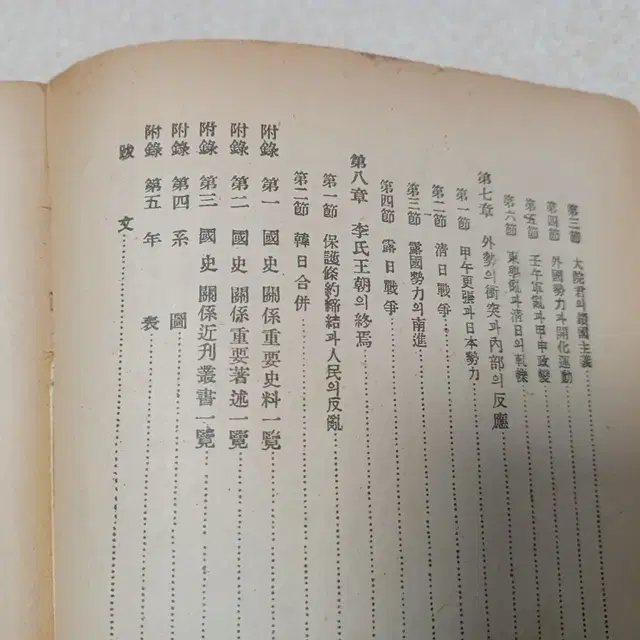 第三節 大院君의 鎖國主義
第四節 外國勢力과 開化運動
第五節 壬午軍亂과 甲申政變
第六節 東學亂과 淸日의 軋轢
第七章 外勢의 衝突과 內部의 反應
第一節 甲午更張과 日本勢力
第二節 淸日戰爭
第三節 露國勢力의 南進
第四節 露日戰爭
第八章 李氏王朝의 終焉
第一節 保護條約締結과 人民의 反亂
第二節 韓日合併
附錄 第一 國史關係重要史料一覽
附錄 第二 國史關係重要著述一覽
附錄 第三 國史關係近刊叢書一覽
附錄 第四 系圖
附錄 第五 年表
跋文